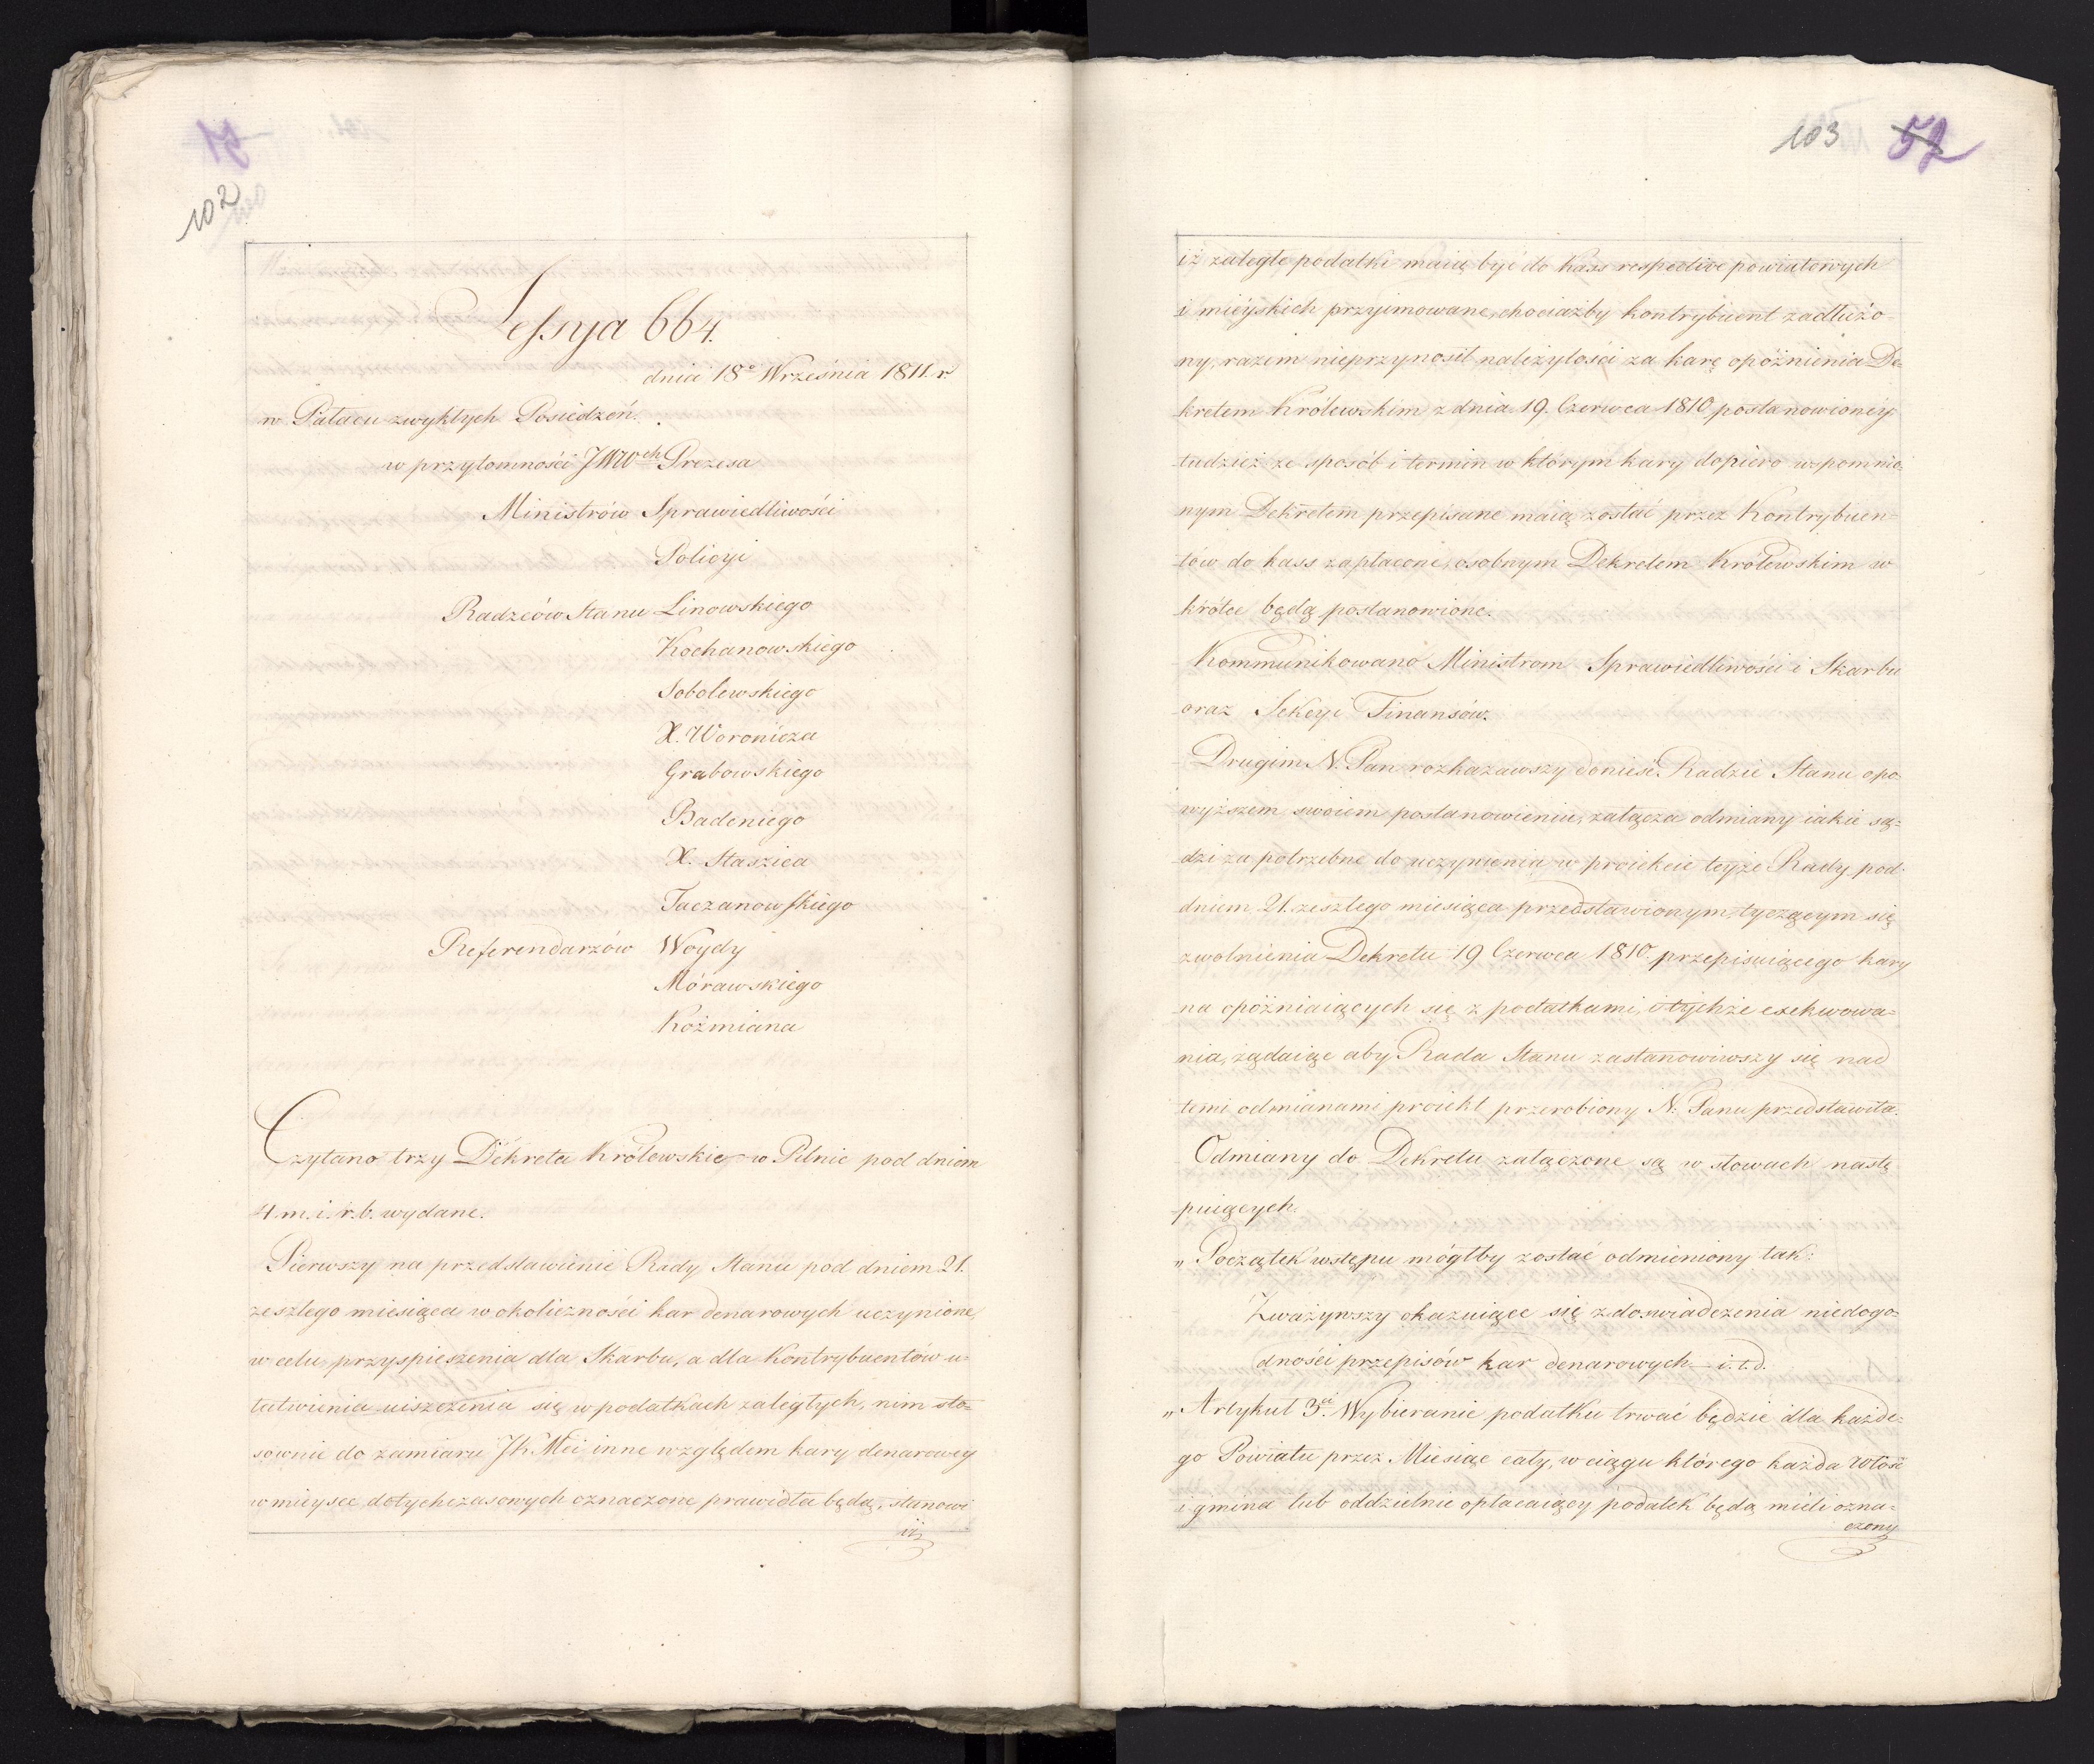 51
102
Sessya 664.
dnia 18º Września 1811. r.
w Pałacu zwykłych Posiedzeń.
w przytomności JWWch Prezesa
Ministrów Sprawiedliwości
Policyi
Radzców Stanu Linowskiego
Kochanowskiego
Sobolewskiego
X. Woronicza
Grabowskiego
Badeniego
X. Staszica
Taczanowskiego
Referendarzów Woydy
Mórawskiego
Koźmiana
Czytano trzy Dekreta Królewskie w Pilnic pod dniem
4 m. i. r. b. wydane.
Pierwszy na przedstawienie Rady Stanu pod dniem 21.
zeszłego miesiąca w okoliczności kar denarowych uczynione,
w celu przyspieszenia dla Skarbu, a dla Kontrybuentów u-
łatwienia uiszczenia się w podatkach zaległych, nim sto=
sownie do zamiaru JKMci inne względem kary denarowey
w mieysce dotychczasowych oznaczone prawidła będą, stanowi
iż
103 52
iż zaległe podatki maią być do Kass respective powiatowych
i mieyskich przyimowane, chociażby kontrybuent zadłużo-
ny, razem nieprzynosił należytości za karę opóźnienia De-
kretem Królewskim z dnia 19. Czerwca 1810 postanowioney;
tudzież że sposób i termin w którym kary dopiero wspomnio-
nym Dekretem przepisane maią zostać przez Kontrybuen-
tów do kass zapłacone, osobnym Dekretem Królewskim w
krótce będą postanowione.
Kommunikowano Ministrom Sprawiedliwości i Skarbu
oraz Sekcyi Finansów.
Drugim N. Pan rozkazawszy donieść Radzie Stanu o po
wyższem swoiem postanowieniu, załącza odmiany iakie są-
dzi za potrzebne do uczynienia w proiekcie teyże Rady pod
dniem 21. zeszłego miesiąca przedstawionym, tyczącym się
zwolnienia Dekretu 19 Czerwca 1810. przepisuiącego kary
na opóźniaiących się z podatkami, i tychże exekwowa=
nia, żądaiąc aby Rada Stanu zastanowiwszy się nad
temi odmianami proiekt przerobiony N. Panu przedstawiła.
Odmiany do Dekretu załączone są w słowach nastę
puiących.
„ Początek wstępu mógłby zostać odmieniony tak:
Zważywszy okazuiące się z doświadczenia niedogo=
dności przepisów kar denarowych i. t. d.
„ Artykuł 3ci. Wybieranie podatku trwać będzie dla każde=
go Powiatu przez Miesiąc cały, w ciągu którego każda Włość
i gmina lub oddzielnie opłacaiący podatek będą mieli ozna=
czony